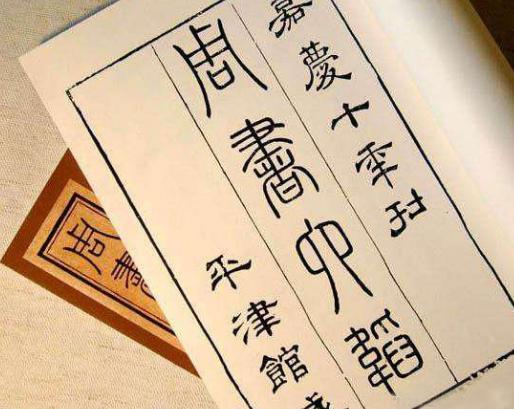 嘉慶十年刊
周書六韜
平津館
周書